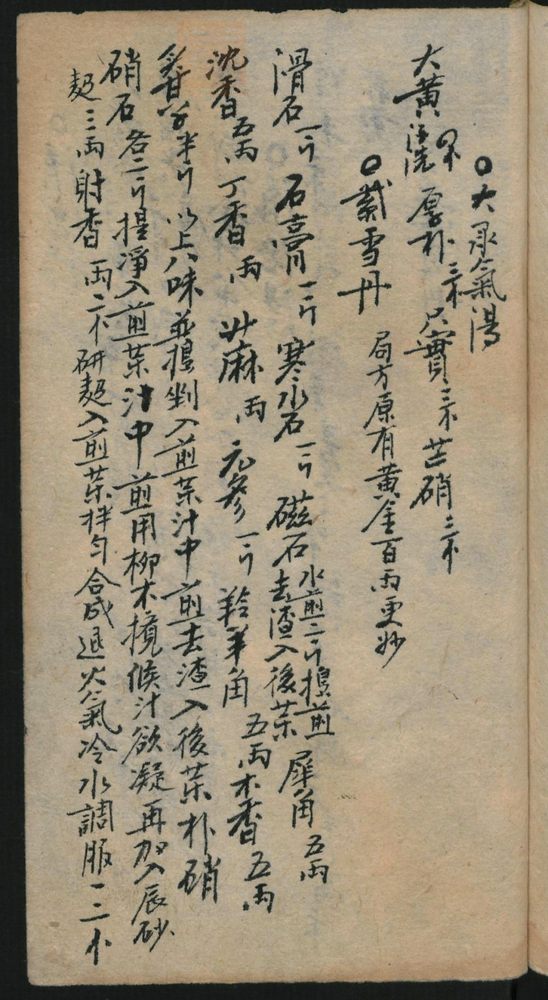 ○大承氣湯
大黃 酒洗 厚朴 只實 芒硝
○紫雪丹 局方原有黃金百両更妙
滑石一斤 石膏一斤 寒水石一斤 磁石 水煎二斤搗煎去渣入後藥 犀角五両
沉香五両 丁香一両 升麻一両 元參一斤 羚羊角五両 木香五両
炙草半斤 以上八味並搗剉入前藥汁中煎去渣入後藥 朴硝
硝石各二斤提淨入前藥汁中煎用柳木攪候汁欲凝再加入辰砂
三両射香 両二 研 入前藥拌勻合成退火氣冷水調服一二